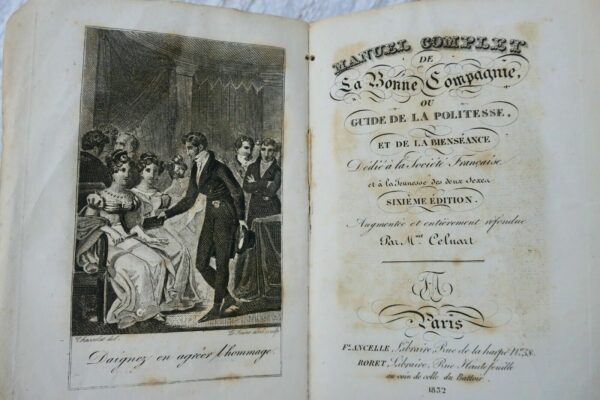 Daignez en agréer l'hommage.
MANUEL COMPLET
DE
La Bonne Compagnie,
OU
GUIDE DE LA POLITESSE,
ET DE LA BIENSÉANCE
Dédié à la Société Française
et à la Jeunesse des deux Sexes
SIXIÈME ÉDITION.
Augmentée et entièrement refondue
Par Mme Celnart
Paris
Fx. ANCELLE, Libraire, Rue de la harpe No. 38.
RORET, Libraire, Rue Hautefeuille
au coin de celle du Battoir.
1832